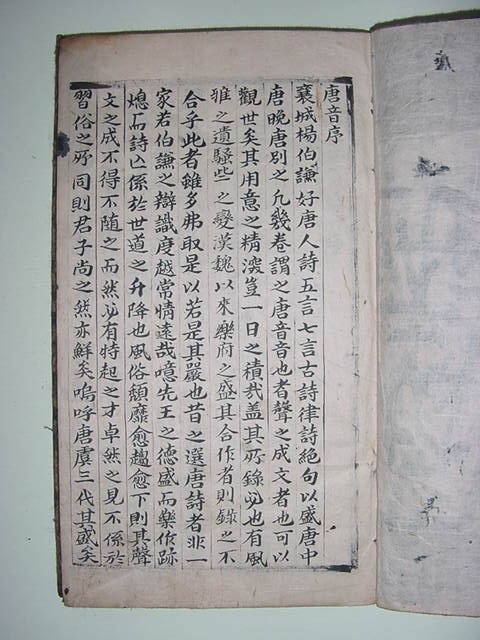 唐音序
襄城楊伯謙好唐人詩五言七言古詩律詩絶句以盛唐中
唐晚唐別之凢幾卷謂之唐音音也者聲之成文者也可以
觀世矣其用意之精深豈一日之積㢤盖其所錄必也有風
雅之遺騷些之變漢魏以來樂府之盛其合作者則錄之不
合乎此者雖多弗取是以若是其嚴也昔之選唐詩者非一
家若伯謙之辯識度越常情遠哉噫先王之德盛而樂作跡
熄而詩亾係於世道之升降也風俗頹靡愈趨愈下則其聲
文之成不得不隨之而然必有特起之才卓然之見不係於
習俗之所同則君子尚之然亦鮮矣嗚呼唐虞三代其盛矣